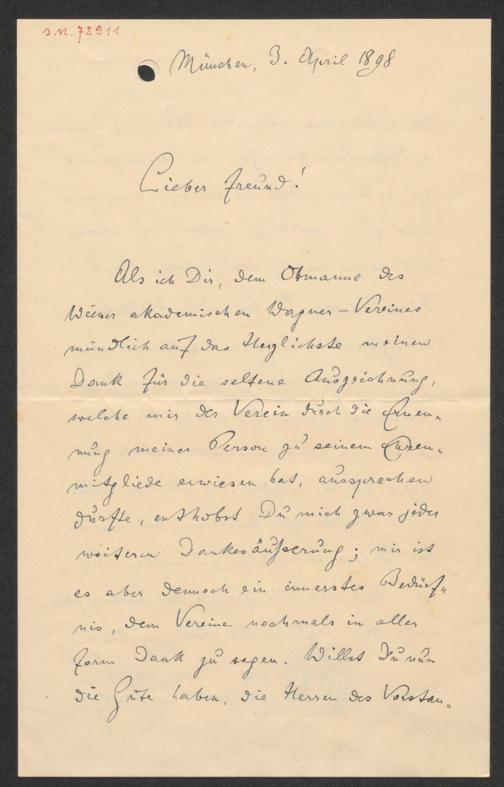 s.n. 72911
München, 3. April 1898
Lieber Freund!
Als ich Dir, dem Obmanne des
Wiener akademischen Wagner-Vereines
mündlich auf das Herzlichste meinen
Dank für die seltene Auszeichnung,
welche mir der Verein durch die Ernen„
nung meiner Person zu seinem Ehren„
mitgliede erwiesen hat, aussprechen
durfte, enthobst Du mich zwar jeder
weiteren Dankesäußerung; mir ist
es aber dennoch ein innerstes Bedürf„
nis, dem Vereine nochmals in aller
Form Dank zu sagen. Willst Du nun
die Güte haben, die Herren des Vorstan„